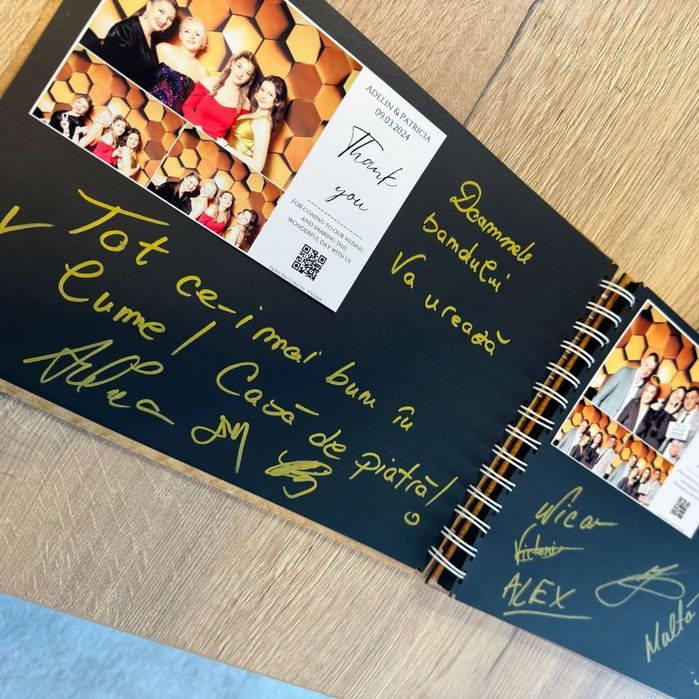 ADELIN & PATRICIA
09.03.2024
Thank
you
FOR COMING TO OUR WEDING
AND SHARING THIS
WONDERFUL DAY WITH US
Doamnele
bandului
Va urează
Tot ce-i mai bun în
lume! Casă de piatră!
Alina
Nica
Victori
ALEX
Multă